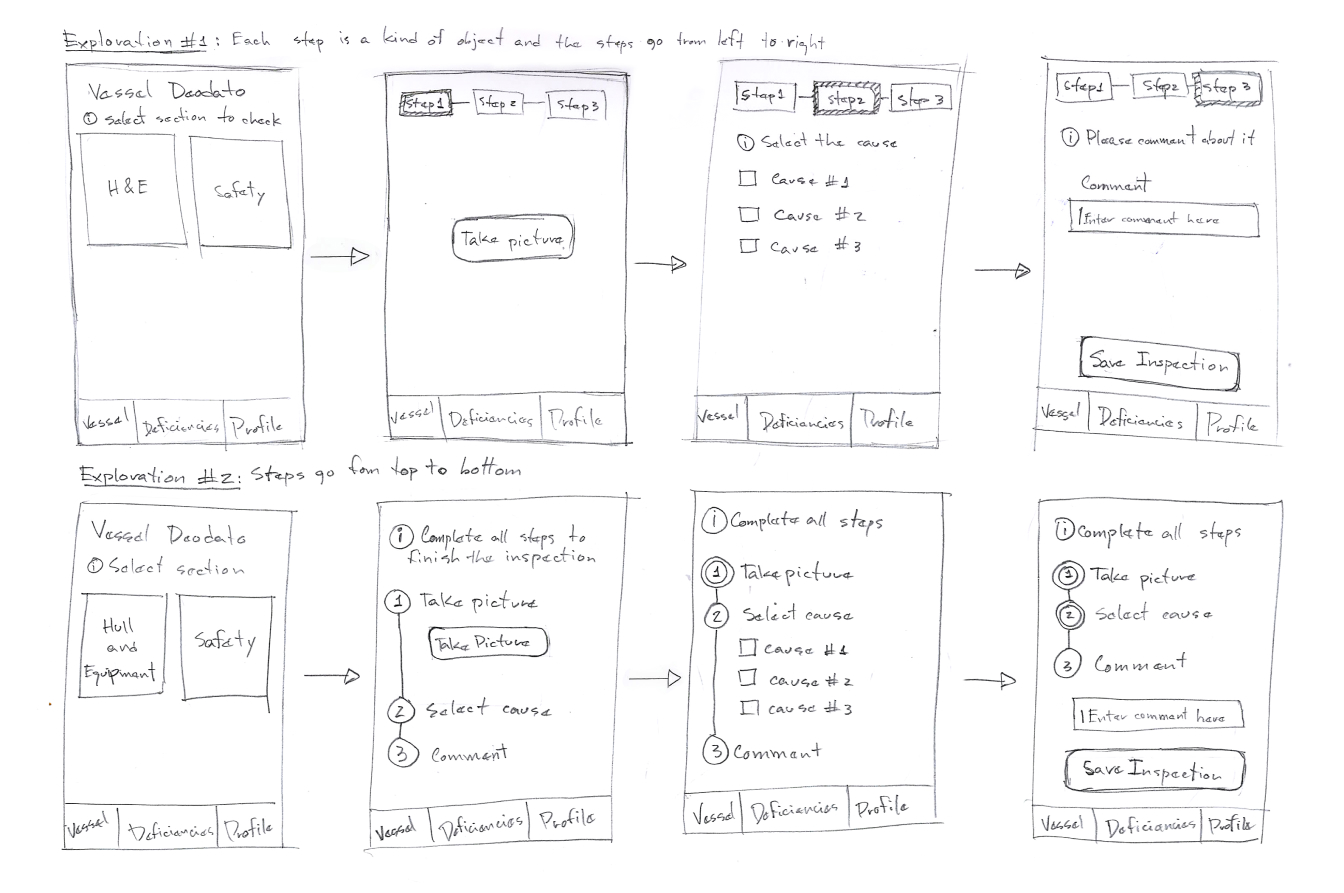 Exploration #1: Each step is a kind of object and the steps go from left to right
Vessel Deodato
i Select section to check
H&E
Safety
Vessel
Deficiencies
Profile
Step1
Step2
Step3
Take picture
Vessel
Deficiencies
Profile
Step1
Step2
Step3
i Select the cause
Cause #1
Cause #2
Cause #3
Vessel
Deficiencies
Profile
Step1
Step2
Step3
i Please comment about it
Comment
Enter comment here
Save Inspection
Vessel
Deficiencies
Profile
Exploration #2: Steps go fom top to bottom
Vessel Deodato
i Select section
Hull
and
Equipment
Safety
Vessel
Deficiencies
Profile
i Complete all steps to
finish the inspection
1 Take picture
Take Picture
2 Select cause
3 Comment
Vessel
Deficiencies
Profile
i Complete all steps
1 Take picture
2 Select cause
cause #1
cause #2
cause #3
3 Comment
Vessel
Deficiencies
Profile
i Complete all steps
1 Take picture
2 Select cause
3 Comment
Enter comment here
Save Inspection
Vessel
Deficiencies
Profile